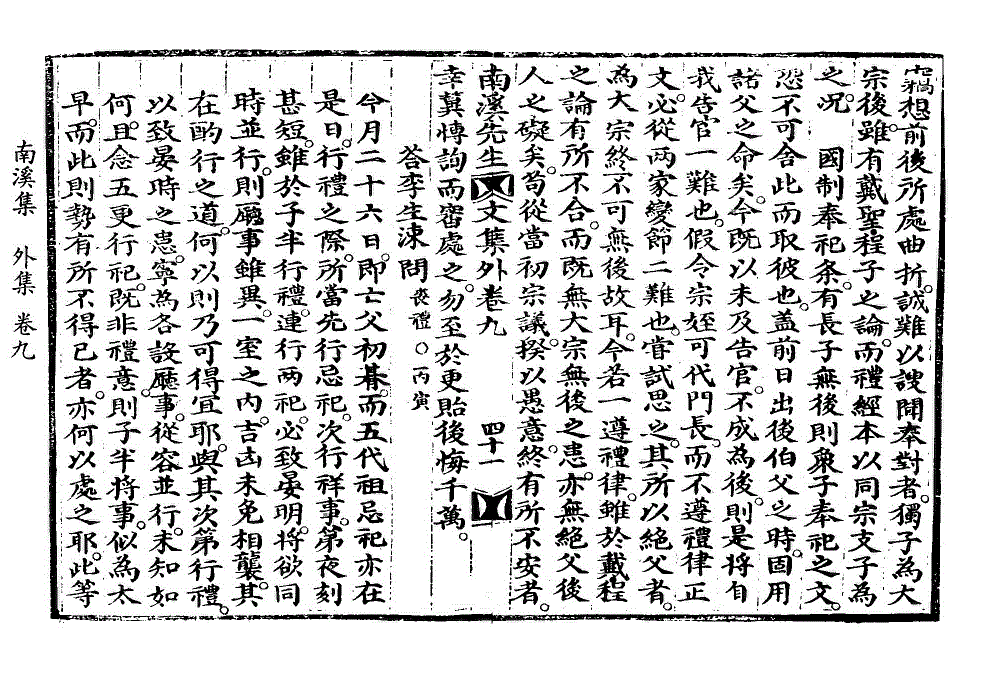 竊想前後所處曲折。誠難以謏聞奉對者。獨子爲大
宗後。雖有戴聖,程子之論。而禮經本以同宗支子爲
之。况 國制奉祀条。有長子無後則衆子奉祀之文。
恐不可舍此而取彼也。盖前日出後伯父之時。固用
諸父之命矣。今旣以未及告官。不成爲後。則是將自
我告官一難也。假令宗姪可代門長。而不遵禮律正
文。必從两家變節二難也。甞試思之。其所以絶父者。
爲大宗終不可無後故耳。今若一遵禮律。雖於戴程
之論有所不合。而旣無大宗無後之患。亦無絶父後
人之礙矣。苟從當初宗議。揆以愚意。終有所不安者。
南溪先生文集外卷九 四十一
幸冀慱詢而審處之。勿至於更貽後悔千萬。
答李生涑問 喪禮○丙寅
今月二十六日。即亡父初朞。而五代祖忌祀亦在
是日。行禮之際。所當先行忌祀。次行祥事。第夜刻
甚短。雖於子半行禮。連行两祀。必致晏明。將欲同
時並行。則廳事雖異。一室之內。吉凶未免相襲。其
在酌行之道。何以則乃可得宜耶。與其次第行禮。
以致晏時之患。寧爲各設廳事。從容並行。未知如
何。且念五更行祀。旣非禮意。則子半將事。似爲太
早。而此則勢有所不得已者。亦何以處之耶。此等
南溪集 外集 卷九